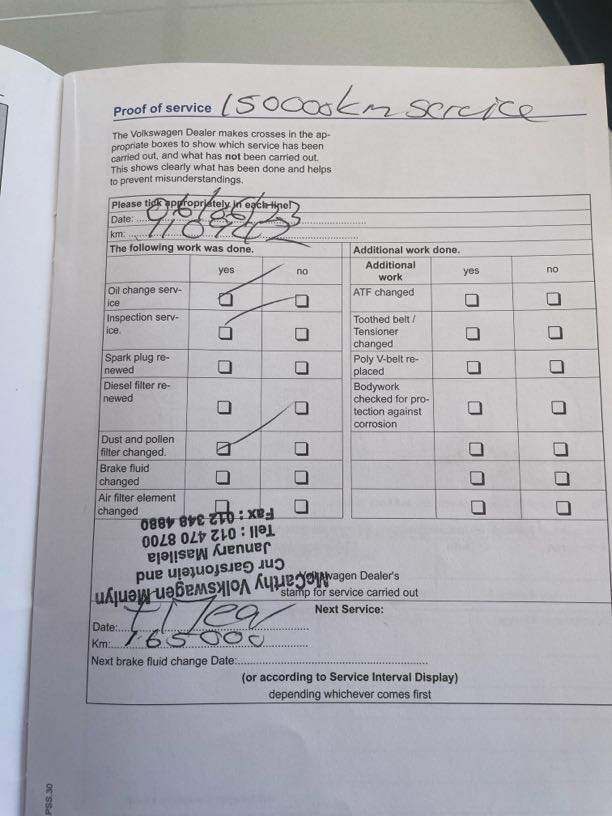 Proof of service 150000km service
The Volkswagen Dealer makes crosses in the ap-
propriate boxes to show which service has been
carried out, and what has not been carried out.
This shows clearly what has been done and helps
to prevent misunderstandings.
Please tick appropriately in each line!
Date:
km:
The following work was done.
yes no
Oil change serv-
ice
Inspection serv-
ice.
Spark plug re-
newed
Diesel filter re-
newed
Dust and pollen
filter changed.
Brake fluid
changed
Air filter element
changed
Additional work done.
Additional
work
yes no
ATF changed
Toothed belt /
Tensioner
changed
Poly V-belt re-
placed
Bodywork
checked for pro-
tection against
corrosion
McCarthy Volkswagen Menlyn
Cnr Garsfontein and
January Masilela
Tell : 012 470 8700
Fax : 012 348 4880
Volkswagen Dealer's
stamp for service carried out
Next Service:
Date: 1 Year
Km: 165000
Next brake fluid change Date:
(or according to Service Interval Display)
depending whichever comes first
PSS.30